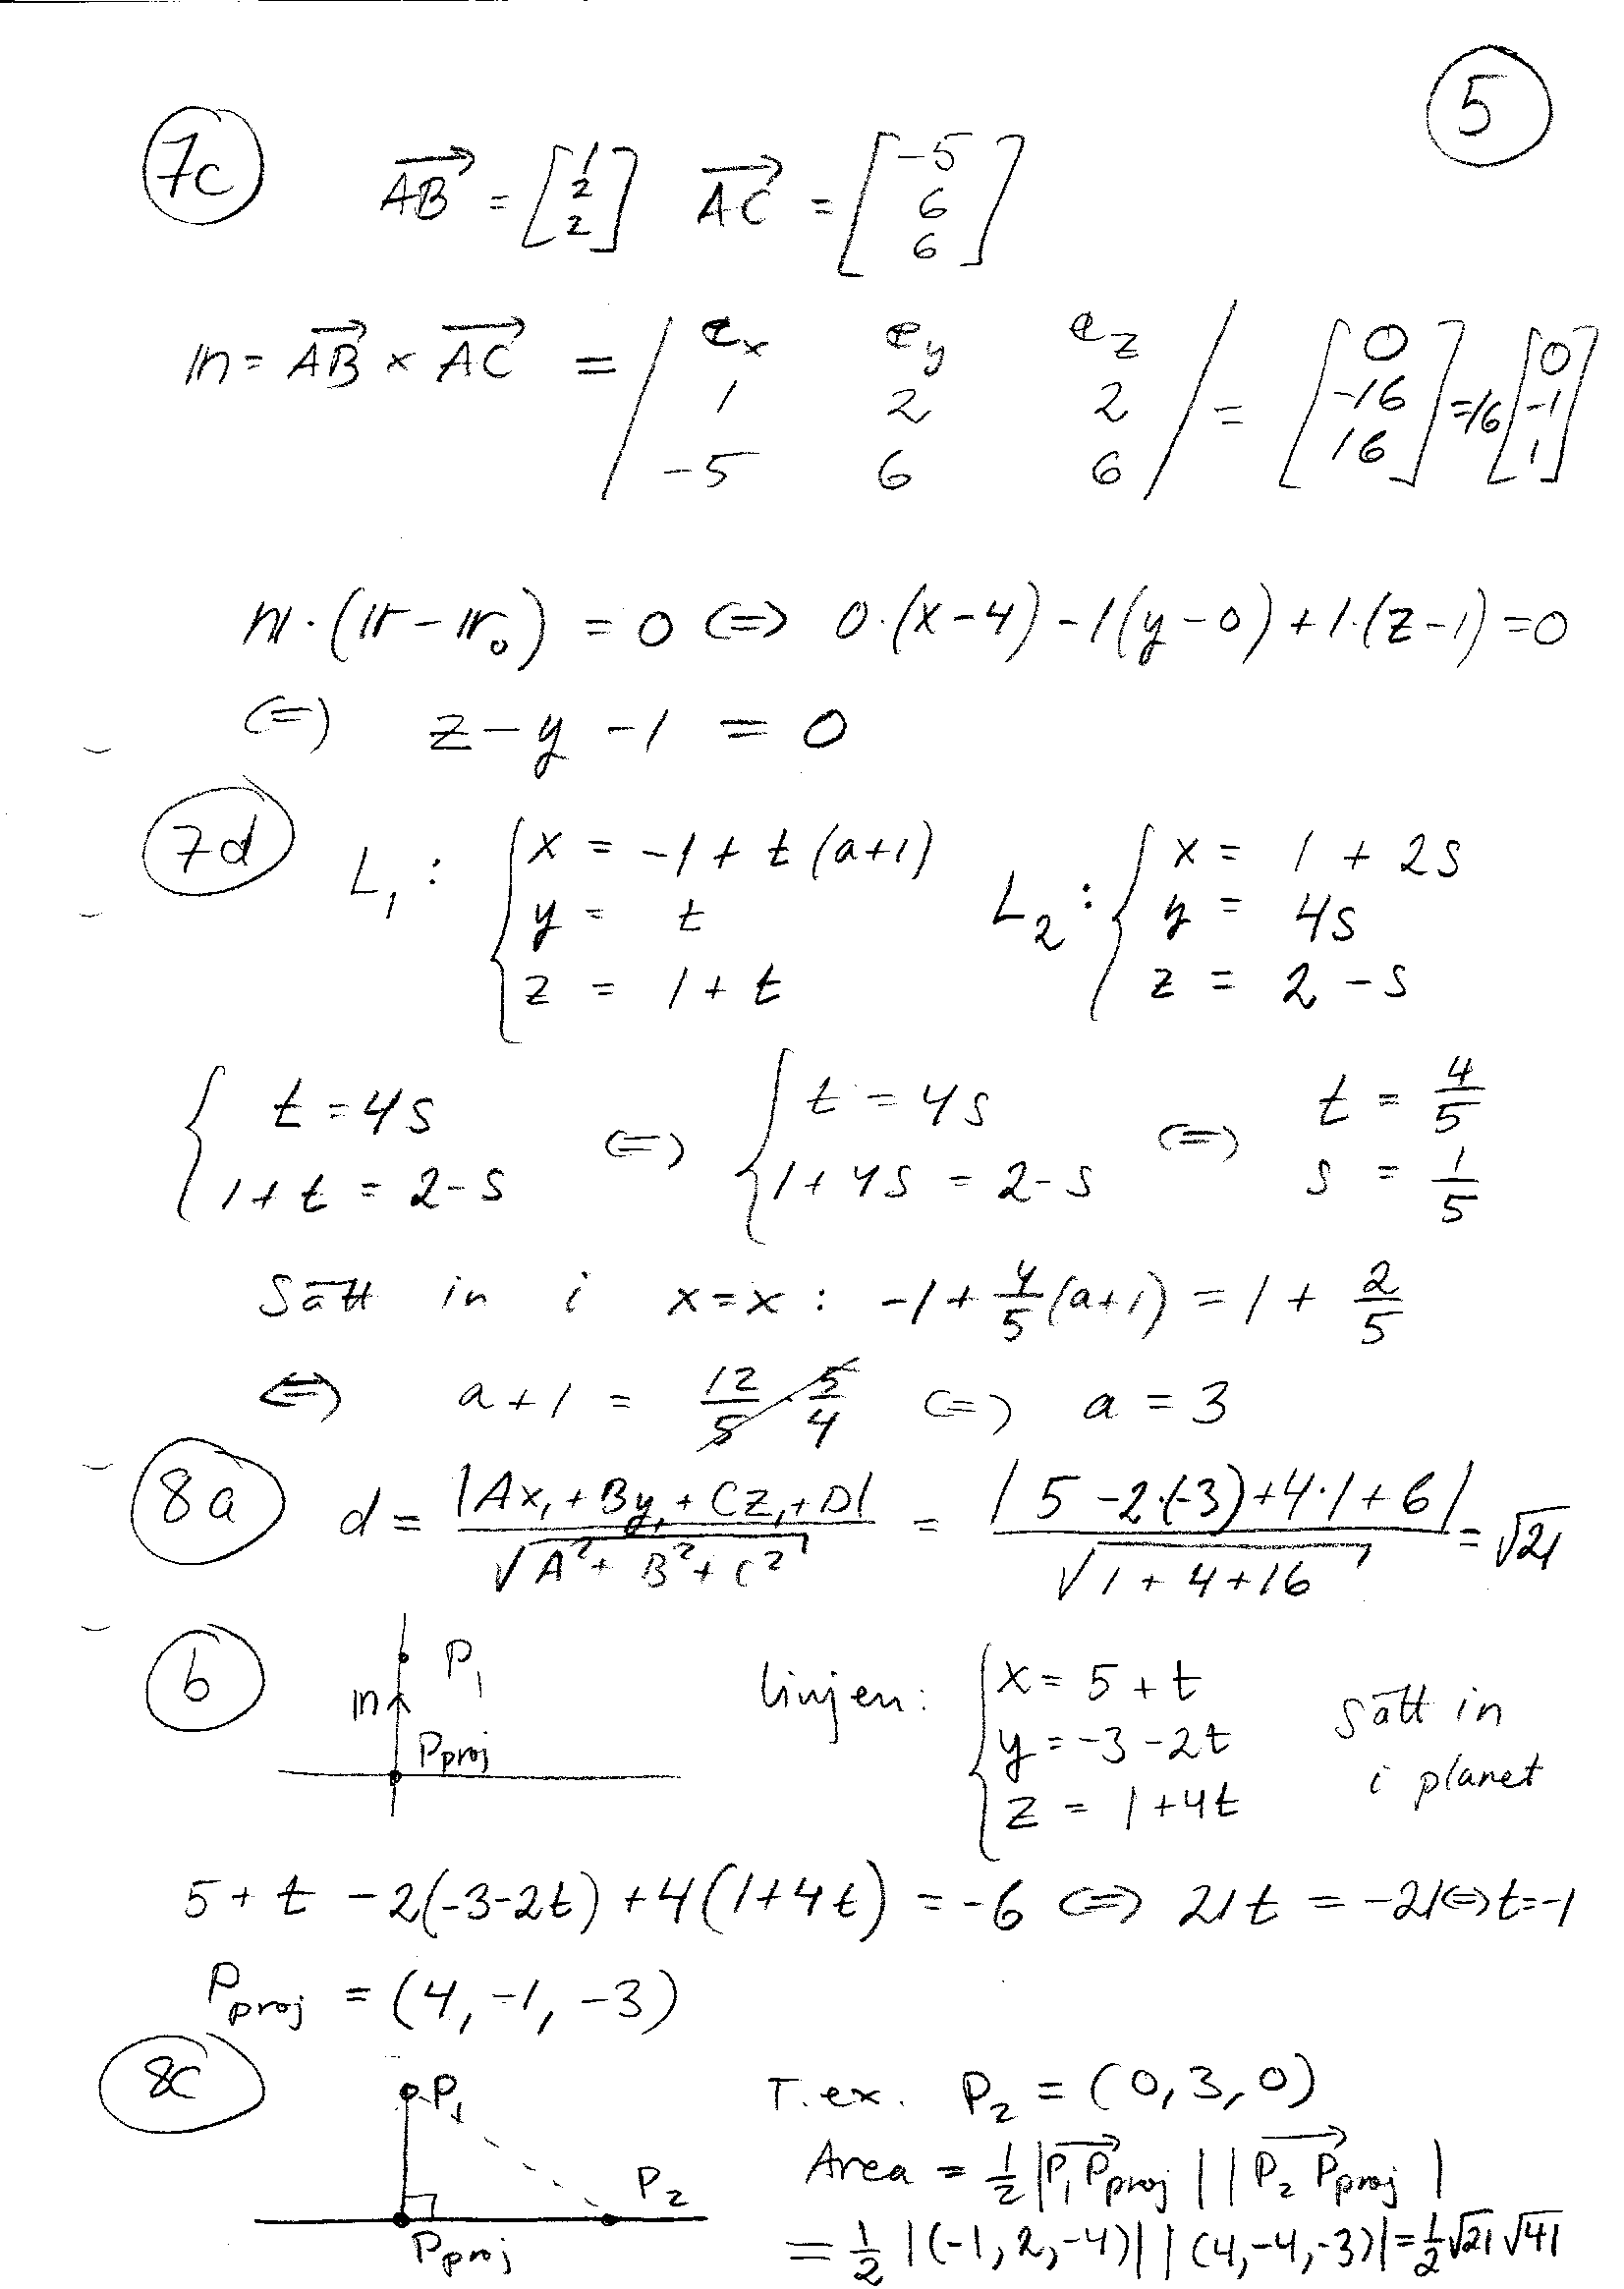 5
7c AB = [1 2 2] AC = [-5 6 6]
n = AB × AC = | e_x e_y e_z
1 2 2
-5 6 6 | = [0 -16 16] = 16 [0 -1 1]
n · (r - r₀) = 0 <=> 0·(x-4) - 1(y-0) + 1·(z-1) = 0
<=> z - y - 1 = 0
7d L₁: { x = -1 + t(a+1)
y = t
z = 1 + t
L₂: { x = 1 + 2s
y = 4s
z = 2 - s
{ t = 4s
1 + t = 2 - s
<=> { t = 4s
1 + 4s = 2 - s
<=> t = 4/5
s = 1/5
Sätt in i x=x: -1 + 4/5 (a+1) = 1 + 2/5
<=> a + 1 = 12/5 · 5/4 <=> a = 3
8a d = |Ax₁ + By₁ + Cz₁ + D| / √(A² + B² + C²) = |5 - 2·(-3) + 4·1 + 6| / √(1 + 4 + 16) = √21
b P₁
n
Pproj
linjen: { x = 5 + t
y = -3 - 2t
z = 1 + 4t
Sätt in
i planet
5 + t - 2(-3-2t) + 4(1+4t) = -6 <=> 21t = -21 <=> t = -1
Pproj = (4, -1, -3)
8c P₁
P₂
Pproj
T.ex. P₂ = (0, 3, 0)
Area = 1/2 |P₁Pproj| |P₂Pproj|
= 1/2 |(-1, 2, -4)| |(4, -4, -3)| = 1/2 √21 √41